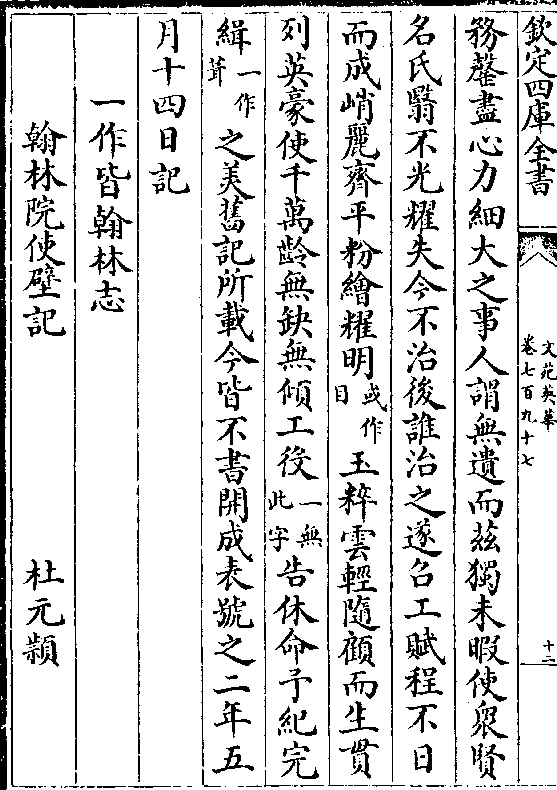 欽定四庫全書
文苑英華
卷七百九十七
十二
務罄盡心力細大之事人謂無遺而茲獨未暇使衆賢
名氏翳不光耀失今不治後誰治之遂召工賦程不日
而成峭麗齊平粉繪耀明或作目玉粹雲輕隨顧而生貫
列英豪使千萬齡無缺無傾工役一無此字告休命予紀完
緝一作葺之美舊記所載今皆不書開成表號之二年五
月十四日記
一作皆翰林志
翰林院使壁記 杜元頴